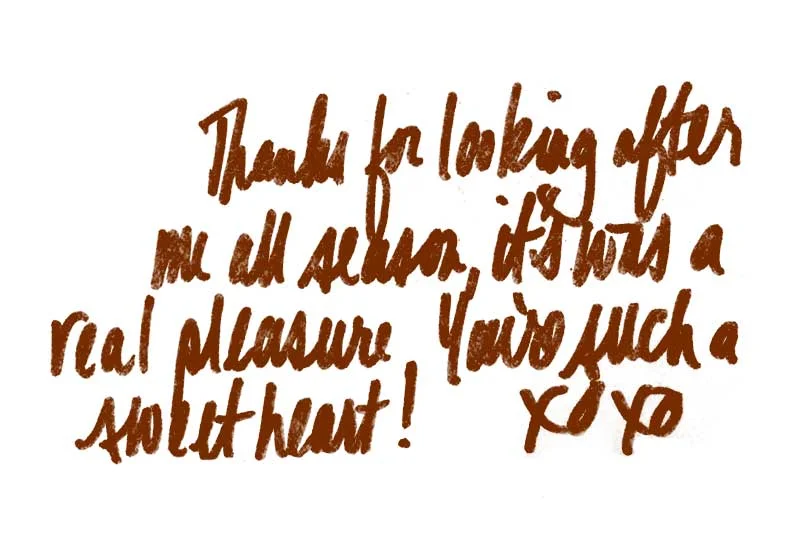 Thanks for looking after
me all season, it's was a
real pleasure. You're such a
sweetheart! xoxo